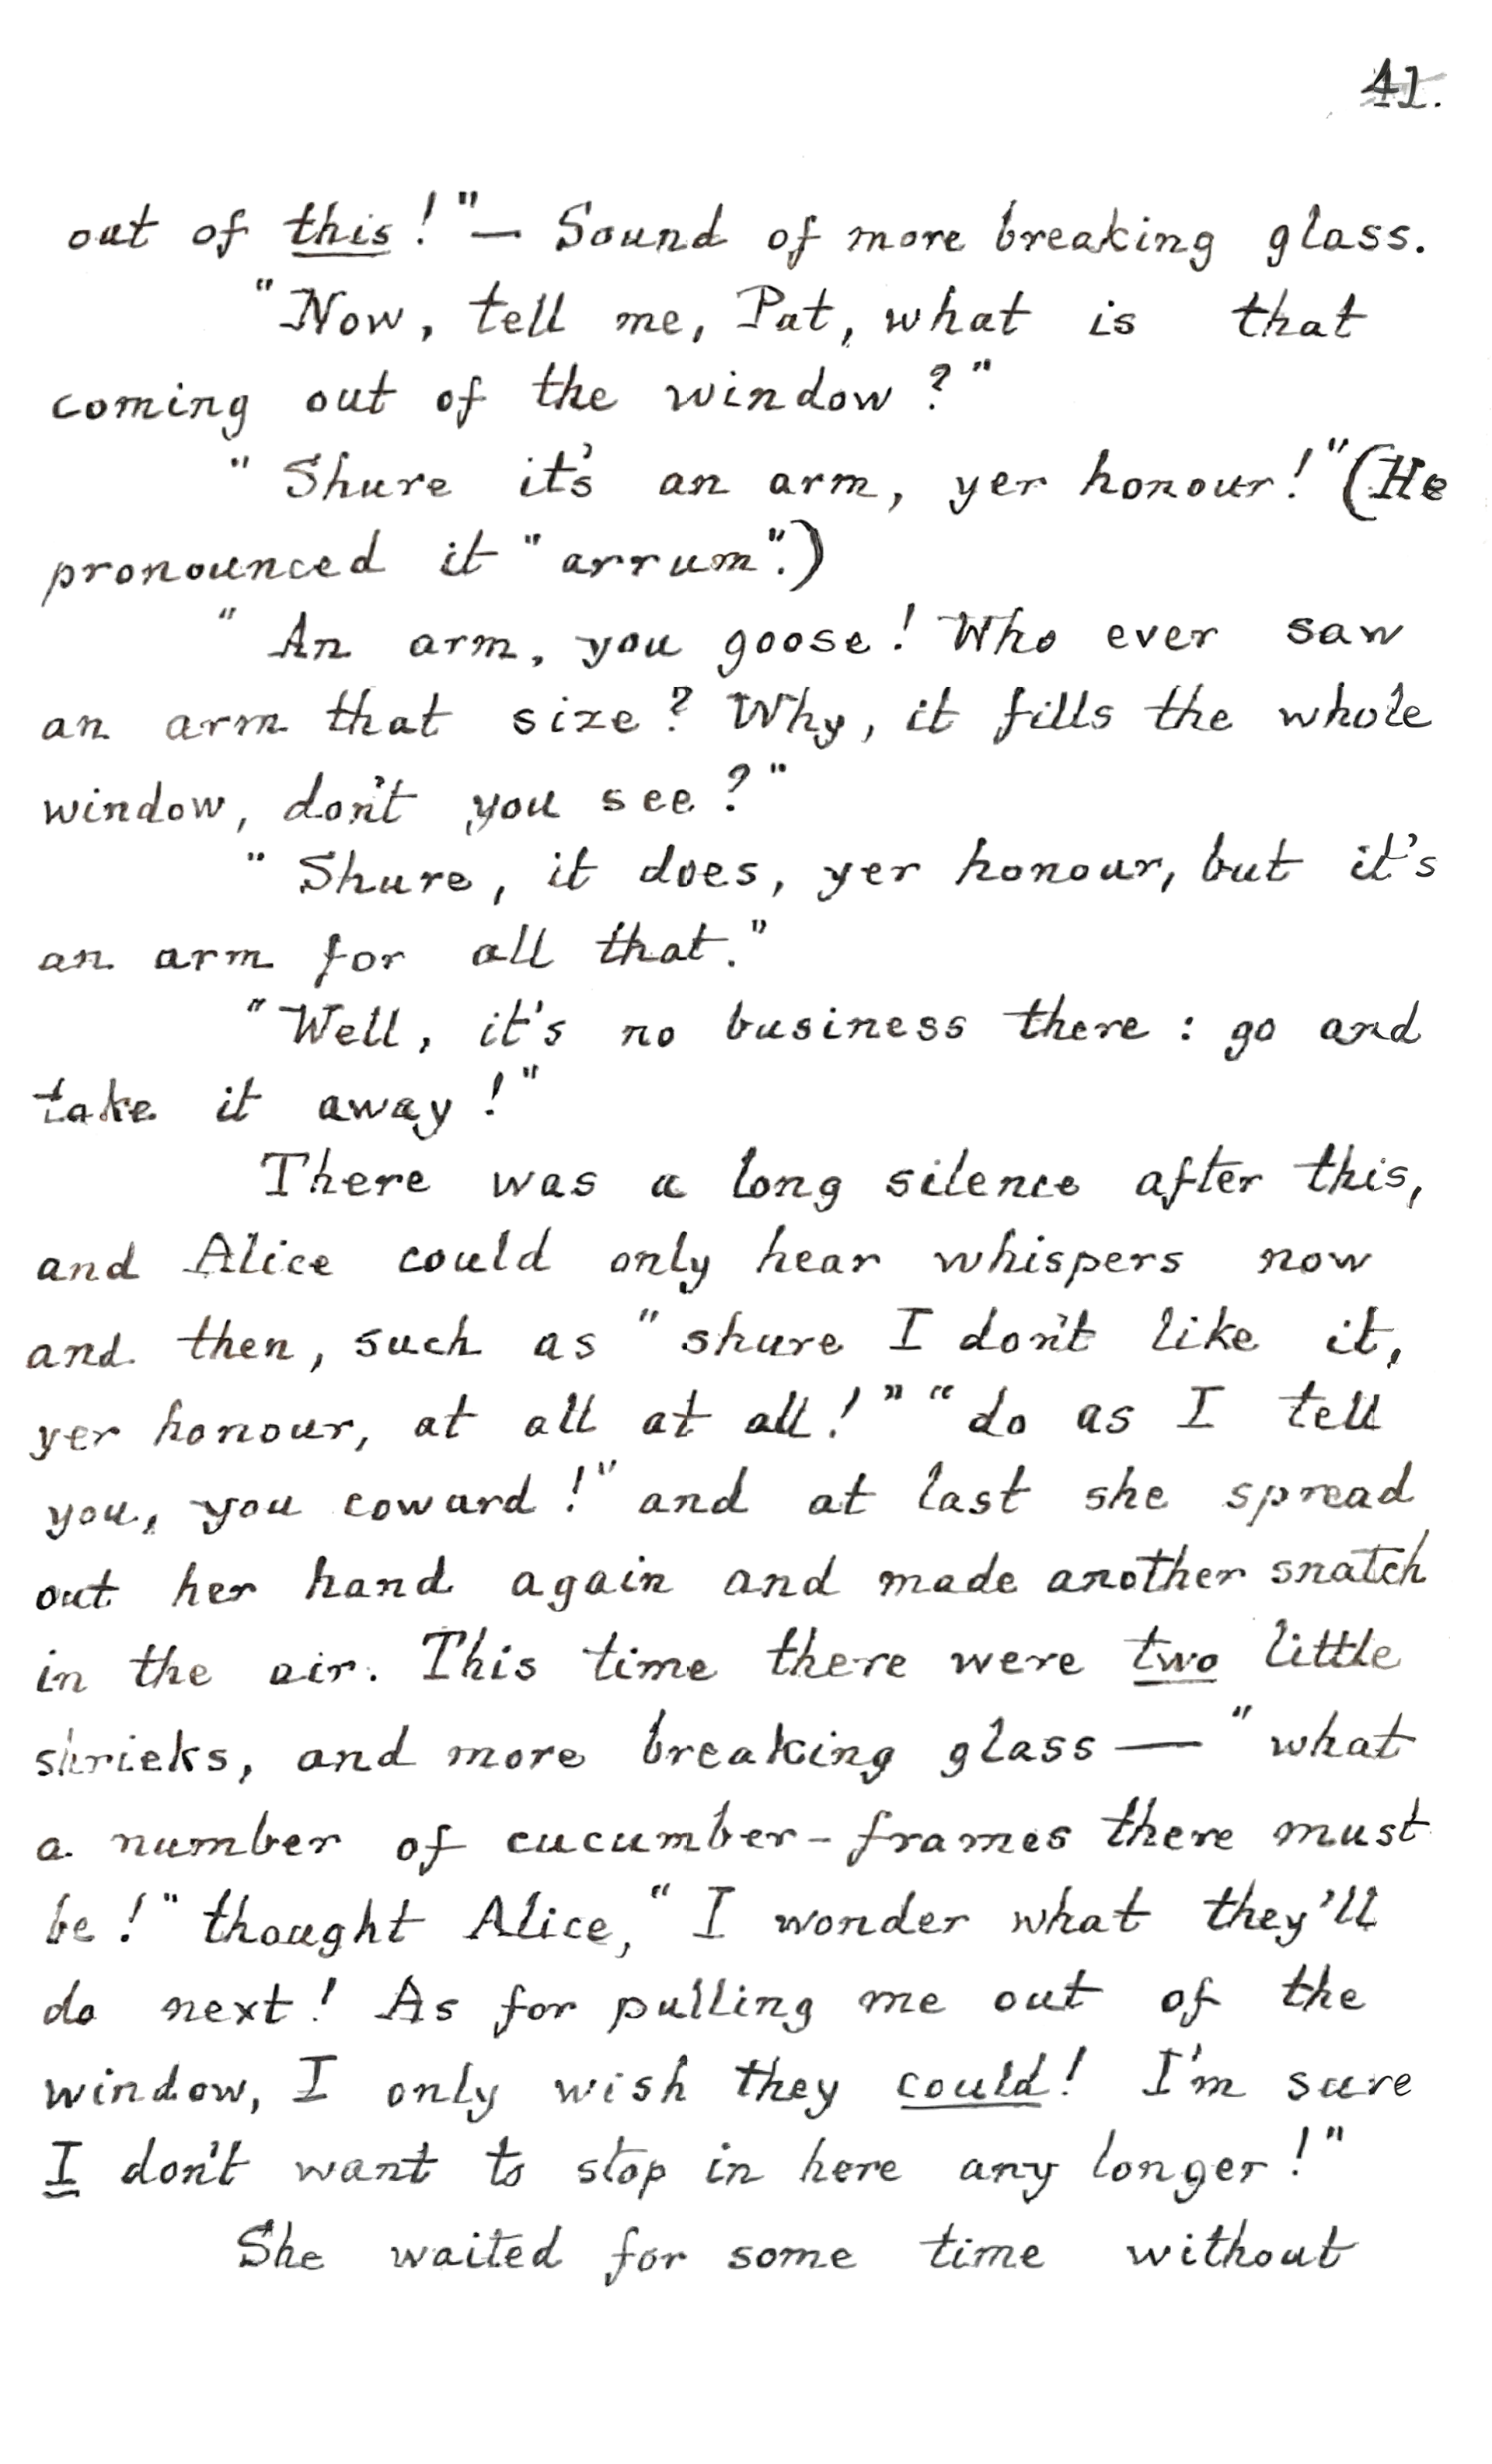 41.
out of this!"— Sound of more breaking glass.
"Now, tell me, Pat, what is that
coming out of the window?"
"Shure it's an arm, yer honour!" (He
pronounced it "arrum".)
"An arm, you goose! Who ever saw
an arm that size? Why, it fills the whole
window, don't you see?"
"Shure, it does, yer honour, but it's
an arm for all that."
"Well, it's no business there: go and
take it away!"
There was a long silence after this,
and Alice could only hear whispers now
and then, such as "shure I don't like it,
yer honour, at all at all!" "do as I tell
you, you coward!" and at last she spread
out her hand again and made another snatch
in the air. This time there were two little
shrieks, and more breaking glass — "what
a number of cucumber-frames there must
be!" thought Alice, "I wonder what they'll
do next! As for pulling me out of the
window, I only wish they could! I'm sure
I don't want to stop in here any longer!"
She waited for some time without